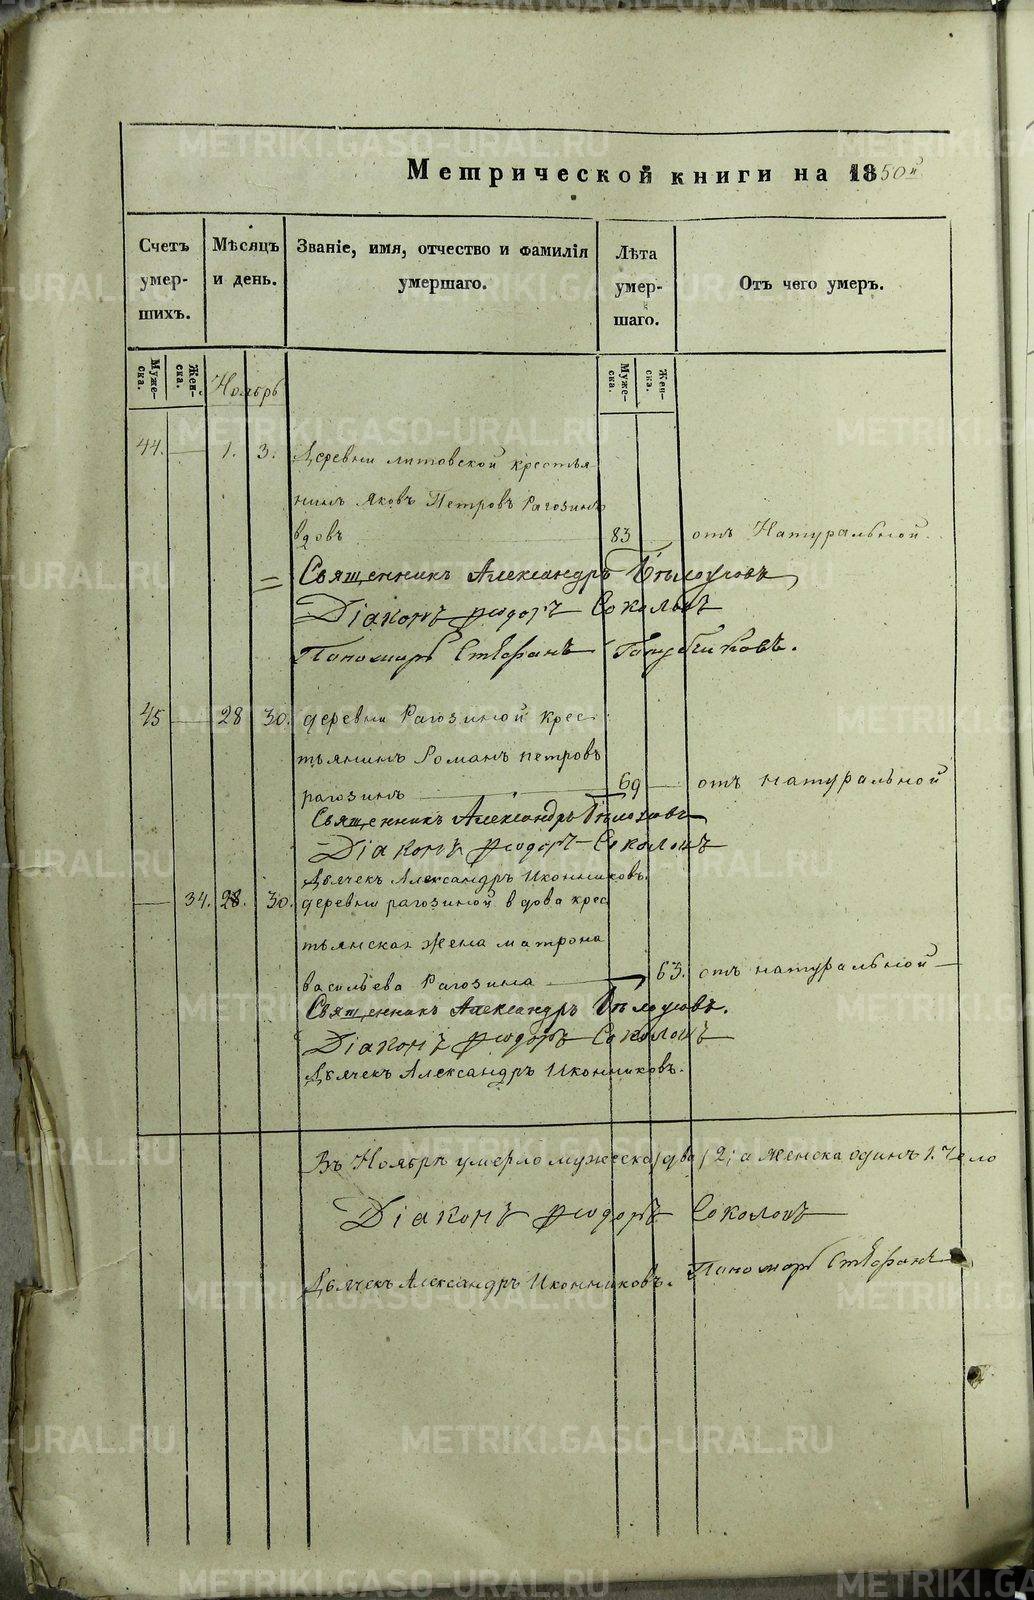 Метрической книги на 1850й
Счетъ умер- шихъ.
Мѣсяцъ и день.
Званіе, имя, отчество и фамилія умершаго.
Лѣта умер- шаго.
Отъ чего умеръ.
Муже- ска.
Жен- ска.
Ноябрь
Муже- ска.
Жен- ска.
44. — 1. 3. Деревни литовской крестья-
нинъ Яковъ Петровъ Рагозинъ
вдовъ 83 — отъ Натуральной
Священникъ Александръ Бѣлоусовъ
Діаконъ Ѳеодоръ Соколовъ
Пономарь Стефанъ Голубчиковъ.
45 — 28 30. деревни Рагозиной крес-
тьянинъ Романъ петровъ
рагозинъ 69 — отъ натуральной
Священникъ Александръ Бѣлоусовъ
Діаконъ Ѳеодоръ Соколовъ
Дьячекъ Александръ Иконниковъ.
— 34. 28. 30. деревни рагозиной вдова крес
тьянская жена матрона
васильева Рагозина — 63. отъ натуральной
Священникъ Александръ Бѣлоусовъ.
Діаконъ Ѳеодоръ Соколовъ
Дьячекъ Александръ Иконниковъ.
Въ Ноябрѣ умерло мужеска /два/ 2; а женска одинъ 1. чело
Діаконъ Ѳеодоръ Соколовъ
Дьячекъ Александръ Иконниковъ. Пономарь Стефанъ
METRIKI.GASO-URAL.RU